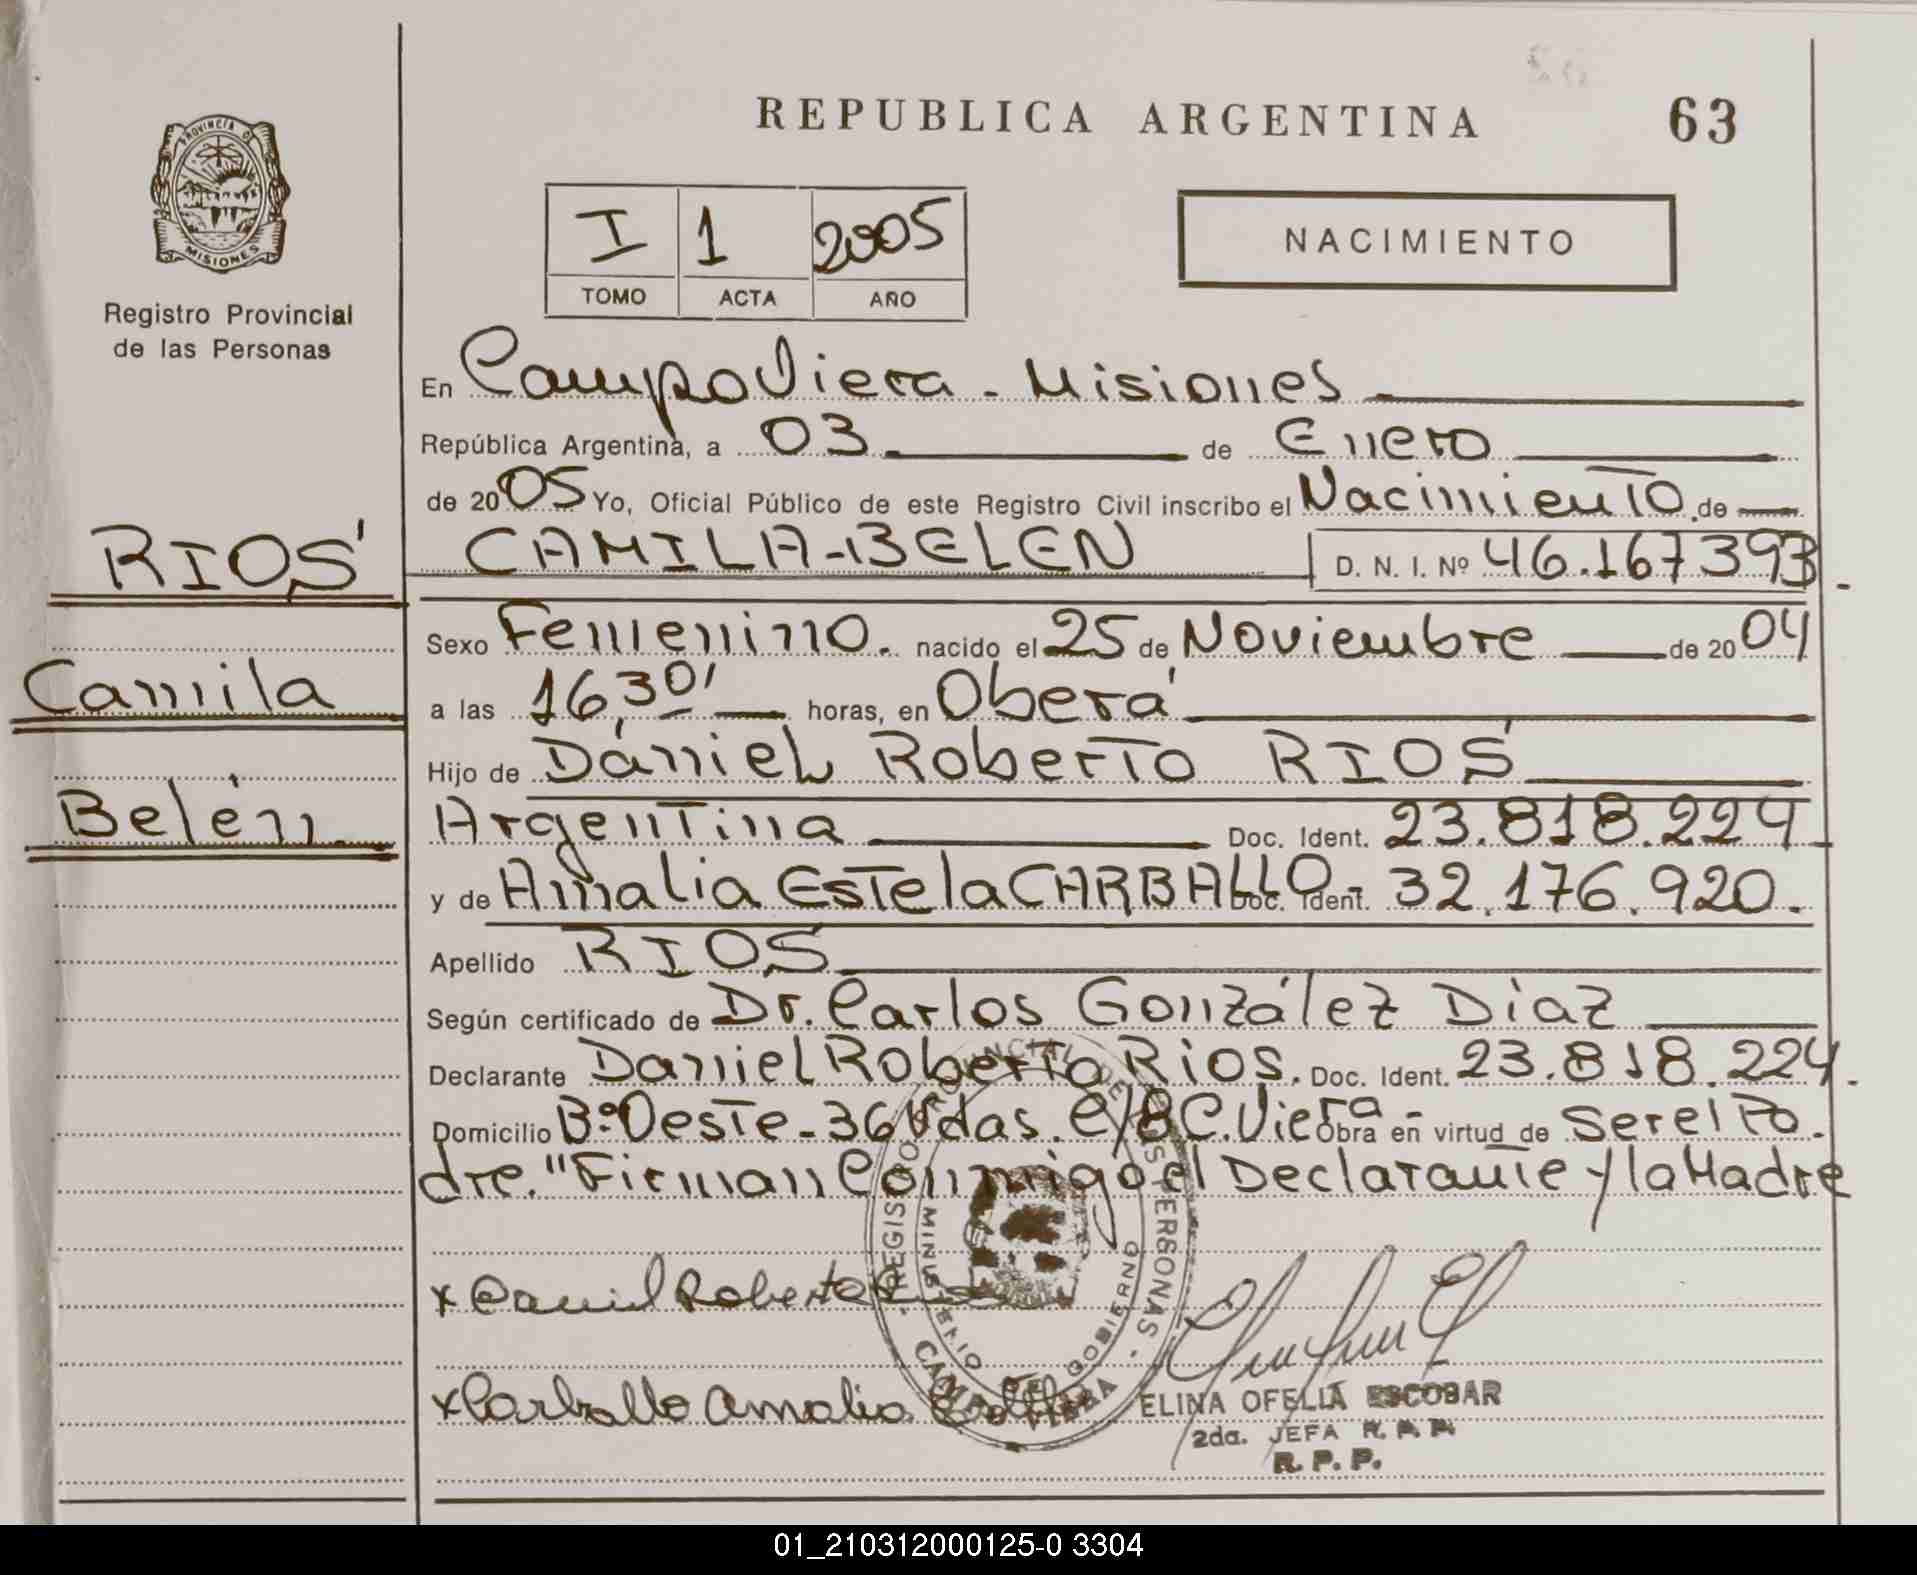 REPUBLICA ARGENTINA 63
PROVINCIA DE MISIONES
Registro Provincial
de las Personas
I 1 2005
TOMO ACTA AÑO
NACIMIENTO
En Campo Viera - Misiones
República Argentina, a 03 de Enero
de 2005 Yo, Oficial Público de este Registro Civil inscribo el Nacimiento de
RIOS
CAMILA-BELEN D. N. I. Nº 46.167.393
Sexo Femenino. nacido el 25 de Noviembre de 2004
Camila
a las 16,30' horas, en Oberá
Hijo de Daniel Roberto RIOS
Belén
Argentina Doc. Ident. 23.818.224
y de Amalia Estela CARBALLO Doc. Ident. 32.176.920.
Apellido RIOS
Según certificado de Dr. Carlos González Diaz
Declarante Daniel Roberto Rios. Doc. Ident. 23.818.224.
Domicilio Bº Oeste - 36 Vdas. C/8 C. Viera - Obra en virtud de Ser el Pa-
dre. "Firman Conmigo el Declarante y la Madre
x Daniel Roberto
x Carballo Amalia
REGISTRO PROVINCIAL DE LAS PERSONAS
MINISTERIO DE GOBIERNO
CAMPO VIERA
ELINA OFELIA ESCOBAR
2da. JEFA
R. P. P.
01_210312000125-0 3304